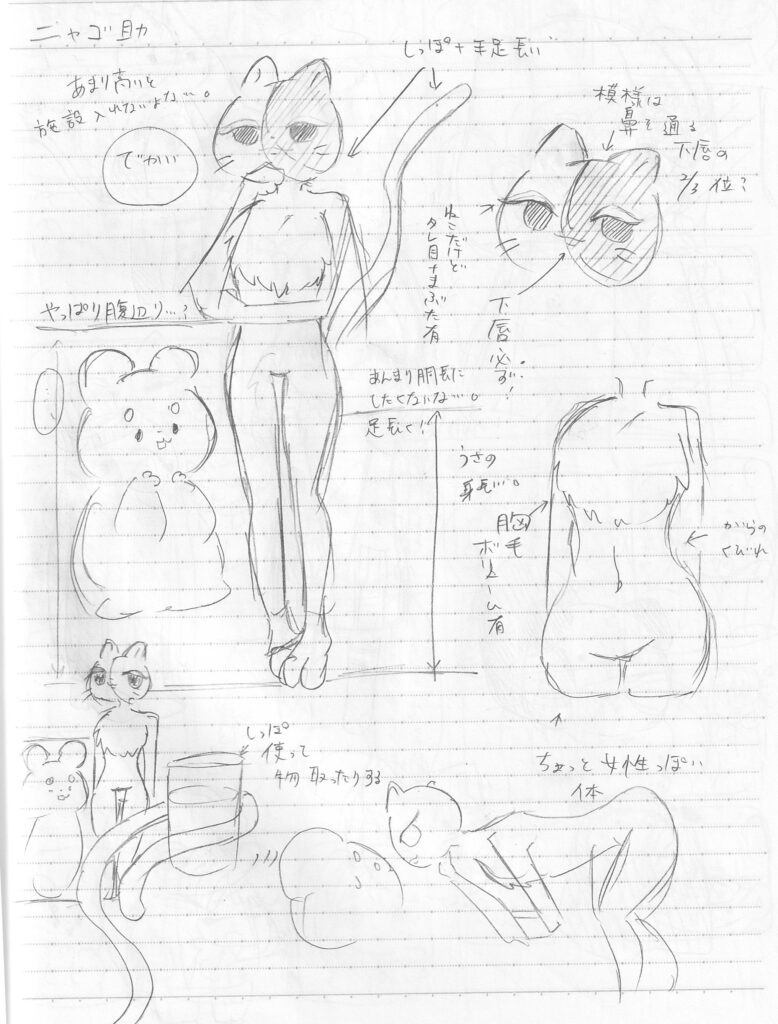 ニャゴ助
しっぽ+手足長い
あまり高いと
施設入れないよな…。
でかい
模様は
鼻を通る
下唇の
2/3位?
ねこだけど
タレ目+まぶた有
下唇必ず!
やっぱり腹辺り…?
あんまり胴長に
したくないな…。
足長く!
うさの
身長…。
胸毛
ボリューム有
からの
くびれ
しっぽ
使って
物取ったりする
ちょっと女性っぽい
体